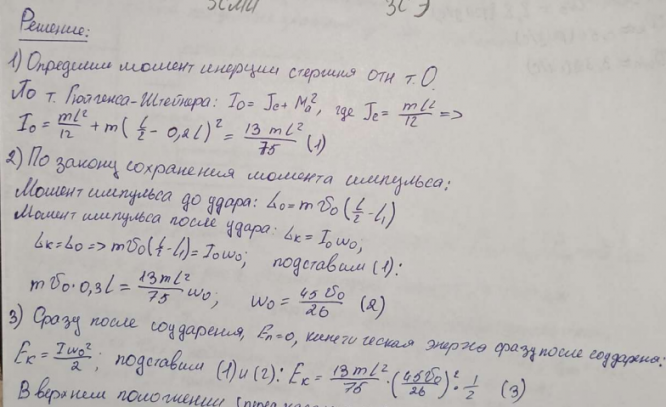 ЗСМИ ЗСЭ
Решение:
1) Определим момент инерции стержня отн т. О.
По т. Гюйгенса-Штейнера: I₀ = Jc + Ma², где Jc = mL²/12 =>
I₀ = mL²/12 + m(L/2 - 0,2L)² = 13mL²/75 (1)
2) По закону сохранения момента импульса:
Момент импульса до удара: L₀ = mv₀(L/2 - L₁)
Момент импульса после удара: Lк = I₀ω₀;
Lк = L₀ => mv₀(L/2 - L₁) = I₀ω₀; подставим (1):
mv₀·0,3L = 13mL²/75 ω₀; ω₀ = 45v₀/26 (2)
3) Сразу после соударения, Eп = 0, кинетическая энергия сразу после соударения:
Eк = Iω₀²/2; подставим (1) и (2): Eк = 13mL²/75 · (45v₀/26)² · 1/2 (3)
В верхнем положении